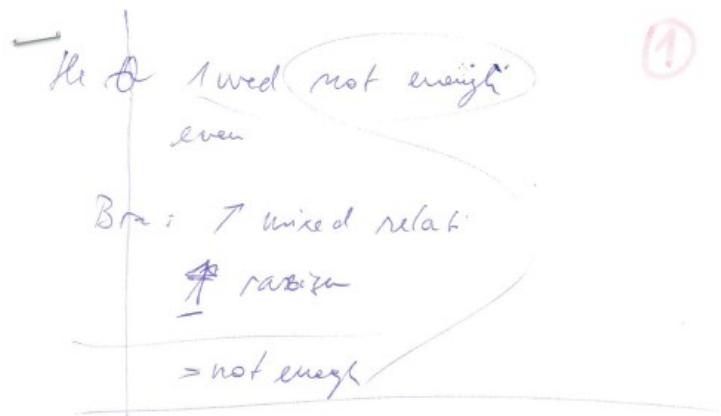 ①
He 1 wed not enough
even
Bra: ↑ mixed relati
↑ rassizm
> not enough